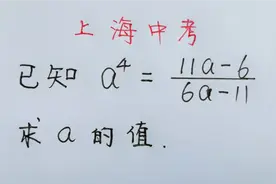 上海中考
已知 a⁴ = (11a-6)/(6a-11)
求 a 的值.